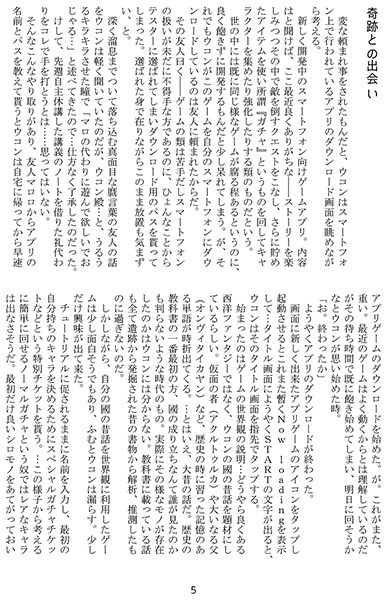 奇跡との出会い
変な頼まれ事をされたもんだと、ウコンはスマートフォ
ン上で行われているアプリのダウンロード画面を眺めなが
ら考える。
新しく開発中のスマートフォン向けゲームアプリ。内容
はと聞けば、ここ最近良くありがちな――ストーリーを楽
しみつつその中で敵を倒すクエストをこなし、さらに貯め
たアイテムを使い所謂『ガチャ』というものを回してキャ
ラクターを集めたり強化したりする類のものだという。
世の中には既に同じ様なゲームが腐る程あるというのに、
良く飽きずに開発するもんだと少し呆れてしまう。が、そ
れでもウコンがこのゲームを自分のスマートフォンにダウ
ンロードしているのは友人に頼まれたからだ。
その友人曰く――ゲームの類は苦手だしスマートフォン
の扱いが未だに不得手な方であるのに、ひょんなことから
テスターに選ばれてしまいダウンロード用のパスを貰って
しまった。選ばれた身で有りながらこのまま放置も気まず
い、と。
深く溜息までついて落ち込む真面目な麿言葉の友人の話
をウコンは軽く聞いていたのだが、ウコン殿…と、うるう
るキラキラさせた瞳で「マロの代わりに遊んで欲しいでお
じゃる…」と述べてきたので…仕方なく了承したのだった。
けして、先週自主休講した講義のノートを借りた礼代わ
りをコレで手を打とうとは……思ってはいない。
そんなこんなやり取りがあり、友人マロロからアプリの
名前とパスを教えて貰うとウコンは自宅に帰ってから早速
アプリゲームのダウンロードを始めた。が、これがまた、
重い。最近のゲームはよく動くからとは理解しているのだ
がその待ち時間で既に飽き始めてしまい、明日に回そうか
なとウコンが思い始めた時。
「お。終わったか」
ようやくアプリのダウンロードが終わった。
画面に新しく出来たアプリゲームのアイコンをタップし
起動させるとこれまた暫くNow loadingを表示
して…タイトル画面にようやくSTARTの文字が出ると、
ウコンはそのタイトル画面を指先でタップする。
始まったのはゲームの世界観の説明…どうやら良くある
西洋ファンタジーではなく、ウコンの國の昔話を題材にし
ているらしい。仮面の者（アクルトゥルカ）や大いなる父
（オンヴィタイカヤン）など、歴史の時に習った記憶のあ
る単語が時折出てくる。…とはいえ、大昔の話だ。歴史の
教科書の一番最初の方、國の成り立ちなんて誰が見たのか
も判らないような時代のもの。実際にその様なモノが存在
したのかはウコンには分からない。教科書に載っている話
も全て遺跡から発掘された昔の書物から解析、推測したも
のに過ぎないのだ。
しかしながら、自分の國の昔話を世界観に利用したゲー
ムは少し面白そうでもあり、ふむとウコンは漏らす。少し
だけ興味が出て来た。
チュートリアルに促されるままに名前を入力し、最初の
自分持ちのキャラを決めるためにスペシャルガチャチケッ
トなどという特別チケットを貰う。…この様子から考える
に簡単に回せるノーマルガチャという奴ではレアなキャラ
は出なさそうだ。最初だけ良いシロモノをあてがっておい
5